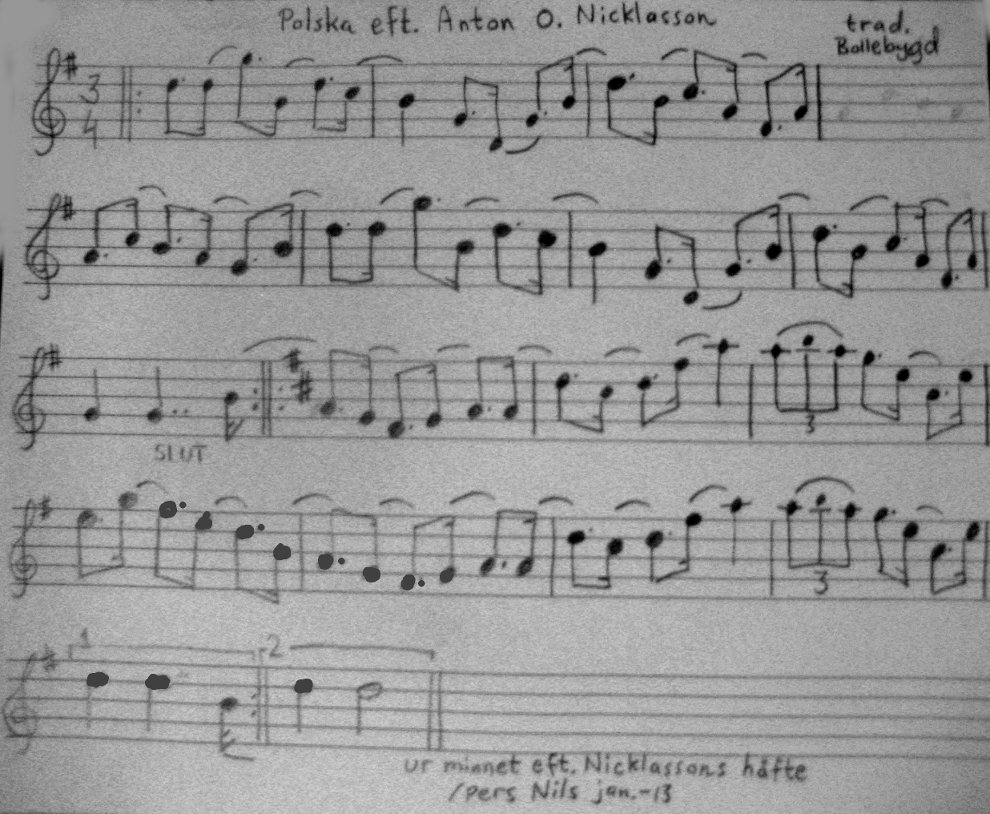 Polska eft. Anton O. Nicklasson
trad.
Bollebygd
3
4
SLUT
3
3
1
2
ur minnet eft. Nicklassons häfte
/Pers Nils jan.-13